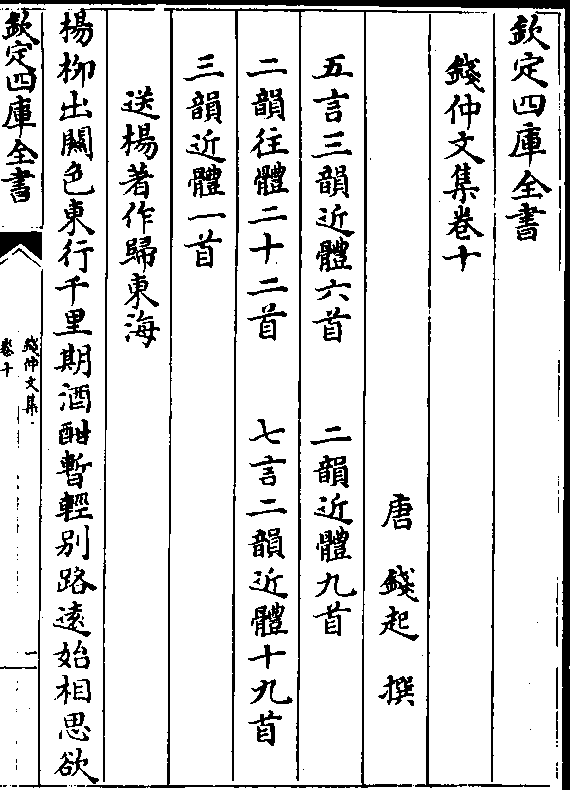 欽定四庫全書
錢仲文集卷十
唐　錢起　撰
五言三韻近體六首　二韻近體九首
二韻往體二十二首　七言二韻近體十九首
三韻近體一首
送楊著作歸東海
楊柳出關色東行千里期酒酣暫輕别路遠始相思欲
欽定四庫全書
錢仲文集
卷十
一